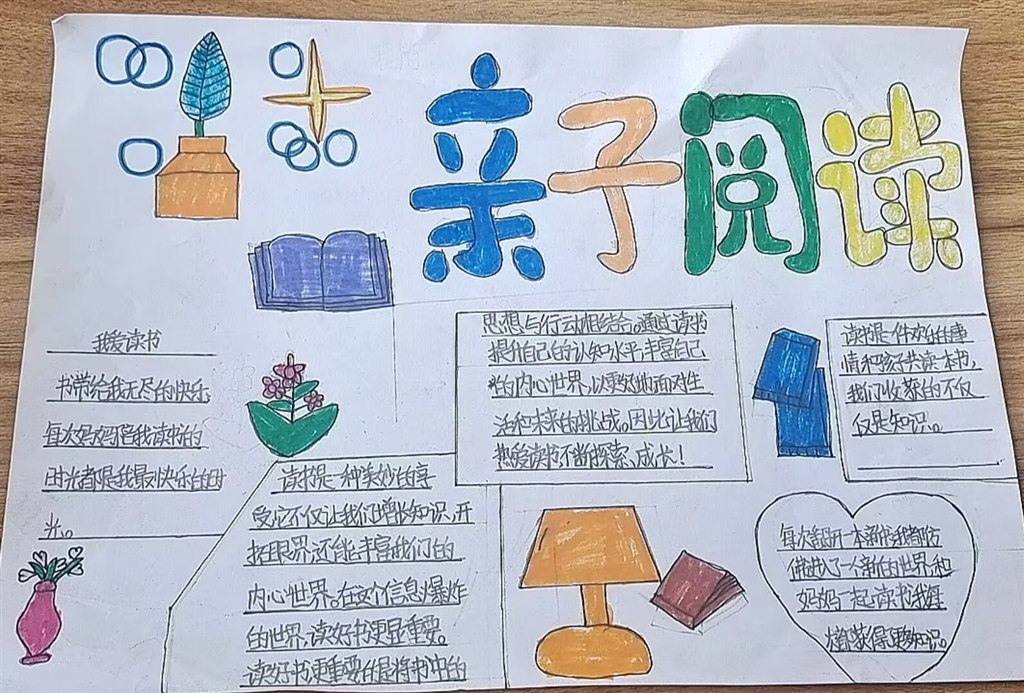 亲子阅读
我爱读书
书带给我无尽的快乐
每次妈妈陪我读书的
时光都是我最快乐的时
光。
读书是一种美妙的享
受它不仅让我们增长知识、开
拓眼界还能丰富我们的
内心世界。在这个信息爆炸
的世界,读好书更显重要。
读好书更重要的是将书中的
思想与行动相结合。通过读书
提升自己的认知水平,丰富自己
的内心世界,以更好地面对生
活和未来的挑战。因此让我们
热爱读书不断探索、成长!
读书是一件欢的事
情和孩子共读一本书,
我们收获的不仅
仅是知识。
每次翻开一本新书我都仿
佛进入了一个新的世界和
妈妈一起读书我
获得更多知识。